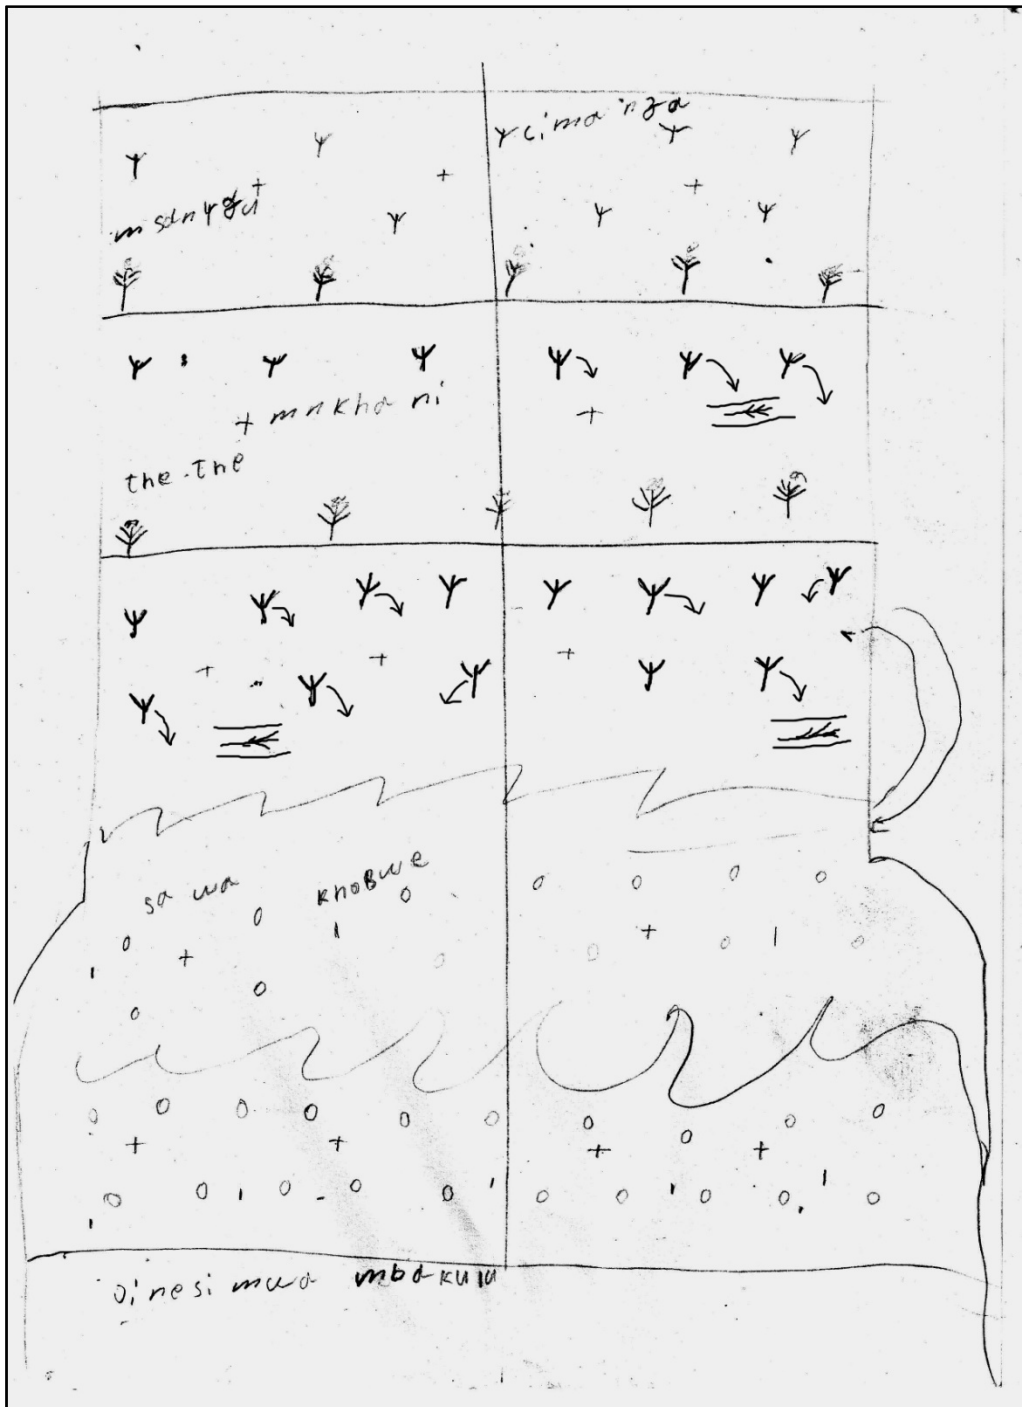 cimanga
+ mnkhani
the-the
sawa
khobwe
Dinesi mwa mbakulu